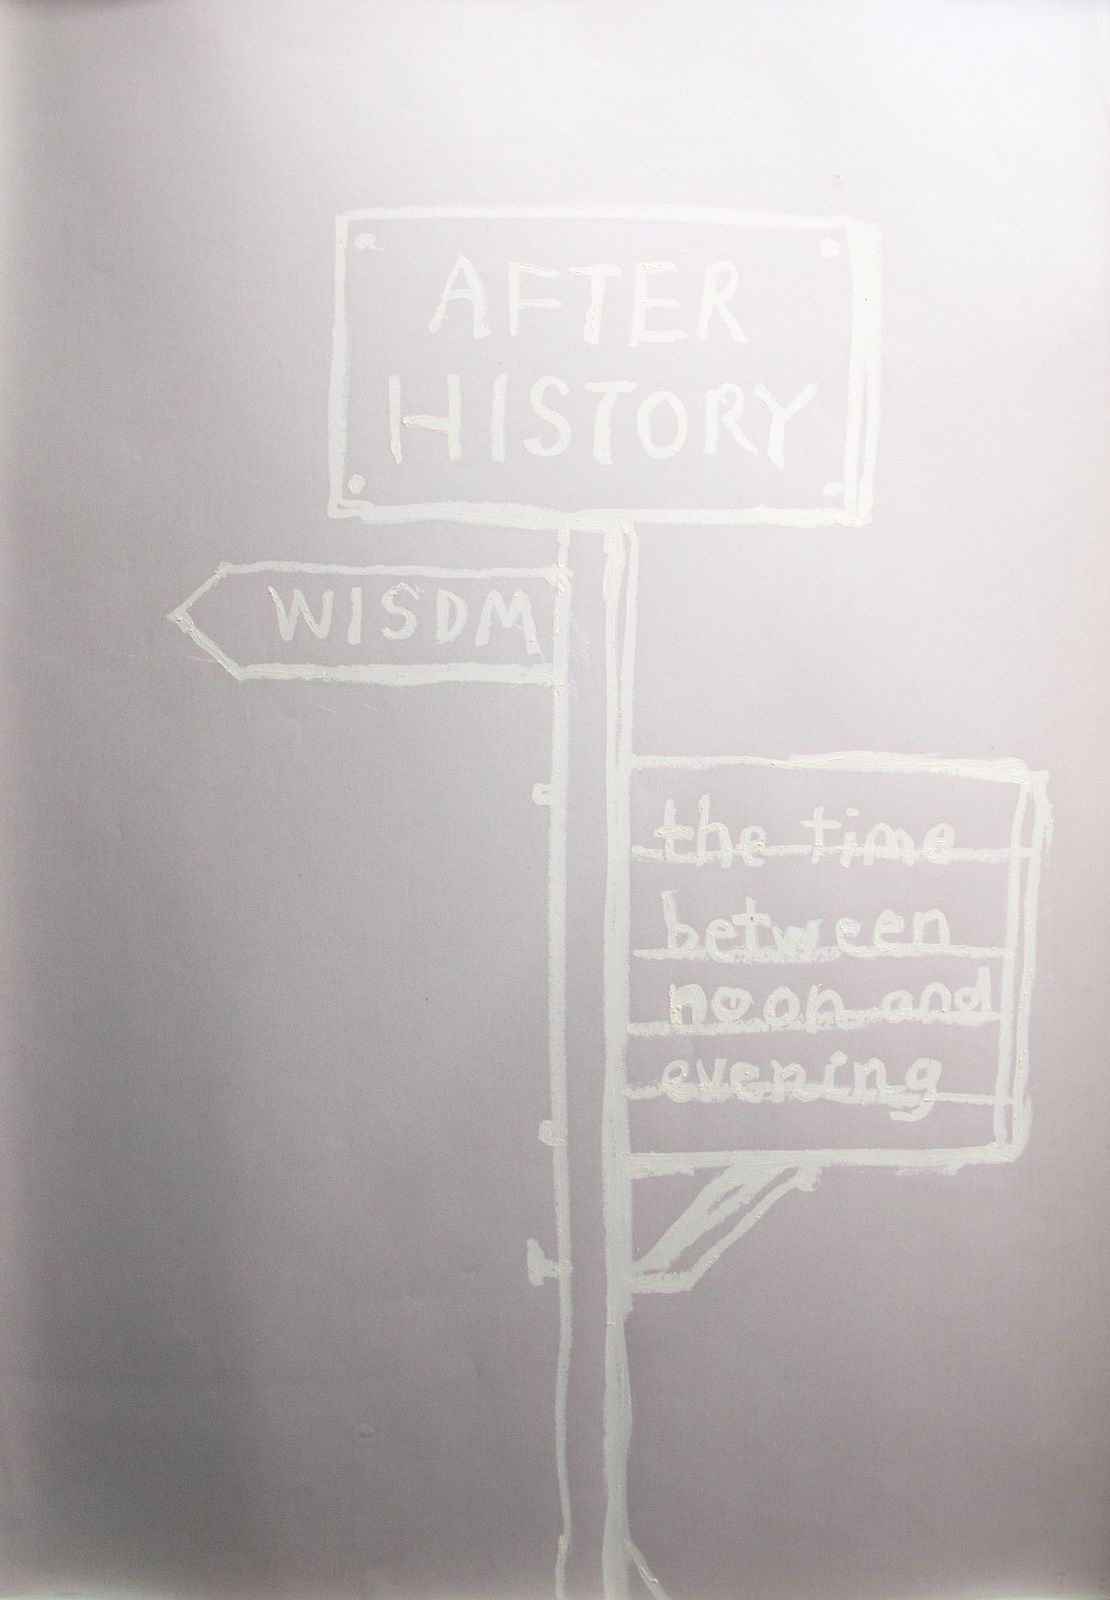 AFTER
HISTORY
WISDM
the time
between
noon and
evening